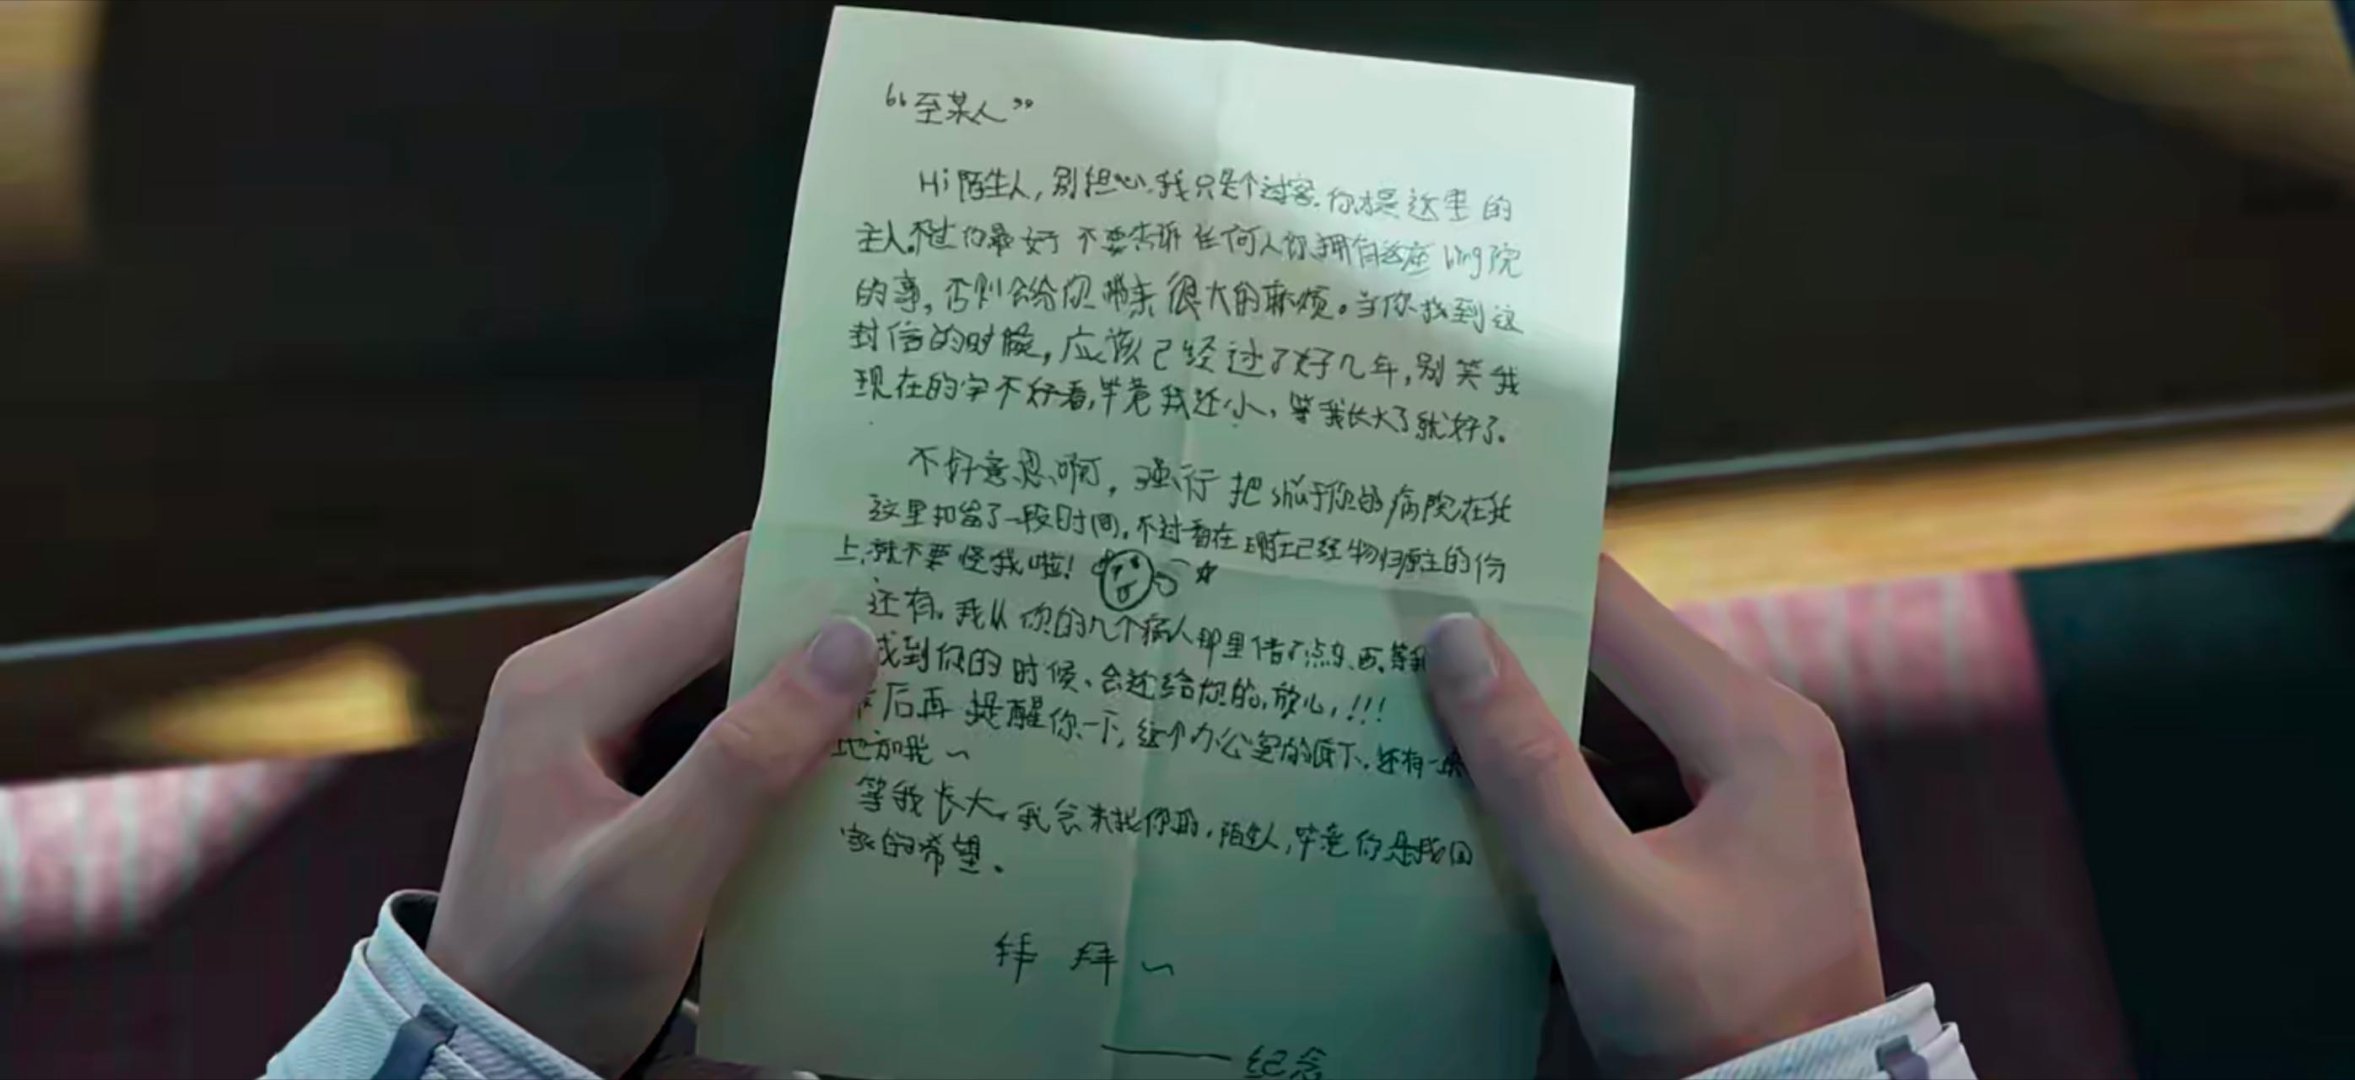 “至某人”
Hi陌生人,别担心.我只是个过客.你才是这里的
主人.不过你最好不要告诉任何人你拥有这座bing院
的事,否则会给你带来很大的麻烦。当你找到这
封信的时候,应该已经过了好几年,别笑我
现在的字不好看,毕竟我还小,等我长大了就好了。
不好意思啊,强行把shu于你的病院在我
这里扣留了一段时间,不过看在现在已经物归原主的份
上,就不要怪我啦!
还有,我从你的几个病人那里借了点东西,等我
找到你的时候、会还给你的,放心,!!!
后再提醒你一下,这个办公室的底下,还有一
地方哦~
等我长大,我会来找你的,陌生人,毕竟你是我回
家的希望。
拜 拜~
——纪念